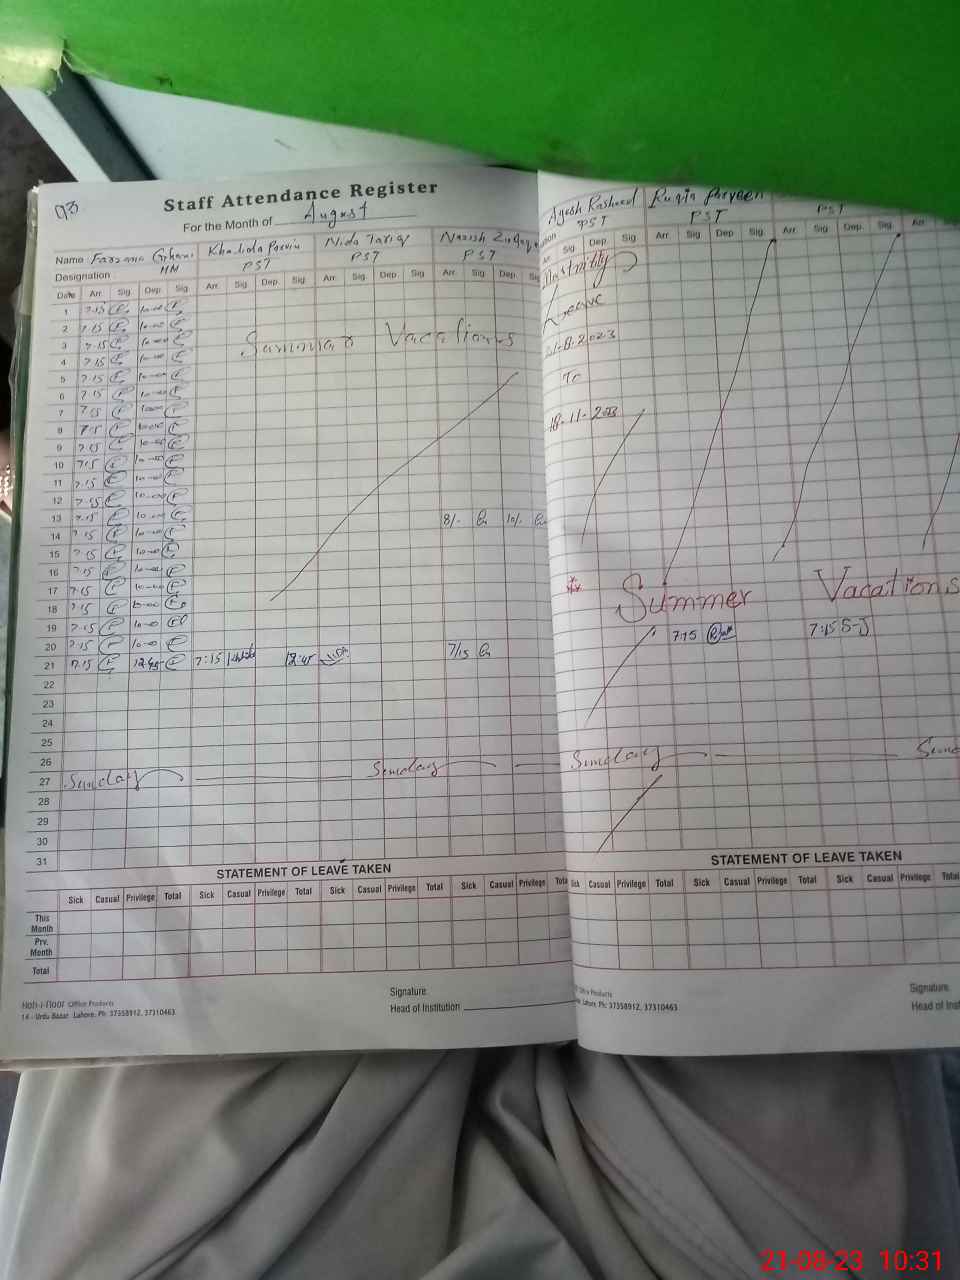 Staff Attendance Register
For the Month of August
Name Farzana Ghani Khalida Parvin Nida Tariq Nazish
Designation HM PST PST PST
Date Arr. Sig. Dep. Sig. Arr. Sig. Dep. Sig. Arr. Sig. Dep. Sig. Arr. Sig. Dep. Sig.
1 7.15 10-00
2 7.15 10-00
3 7.15 10-00
4 7.15 10-00
5 7.15 10-00
6 7.15 10-00
7 7.15 10-00
8 7.15 10-00
9 7.15 10-00
10 7.15 10-00
11 7.15 10-00
12 7.15 10-00
13 7.15 10-00 8/- 10/-
14 7.15 10-00
15 7.15 10-00
16 7.15 10-00
17 7.15 10-00
18 7.15 10-00
19 7.15 10-0
20 7.15 10-0
21 7.15 12:45 7:15 12:45 7/15
22
23
24
25
26
27 Sunday Sunday
28
29
30
31
Summar Vacations
STATEMENT OF LEAVE TAKEN
Sick Casual Privilege Total Sick Casual Privilege Total Sick Casual Privilege Total Sick Casual Privilege Tota
This Month
Prv. Month
Total
Signature
Head of Institution
Hoh-i-noor Office Products
14 - Urdu Bazar Lahore. Ph: 37358912, 37310463
Ayesh Rasheed Ruqia Parveen
PST PST PST
Sig. Dep. Sig. Arr. Sig. Dep. Sig. Arr. Sig. Dep. Sig. Arr.
Leave
To
18-11-2023
Summer Vacations
7:15 7:15 S-J
Sunday
STATEMENT OF LEAVE TAKEN
Sick Casual Privilege Total Sick Casual Privilege Total Sick Casual Privilege Total
Signature
Head of Inst
Office Products
Lahore. Ph: 37358912, 37310463
21-08-23 10:31